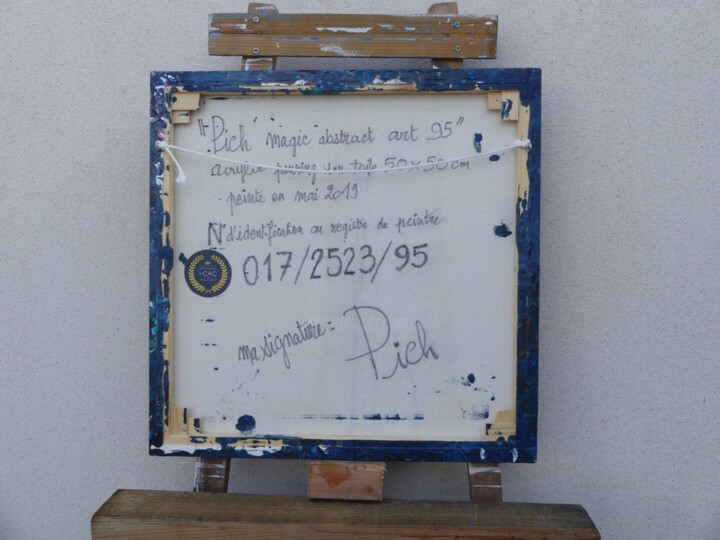 "Pich" magic abstract art 95"
acrylic pouring sur toile 50x50cm
- peinte en mai 2019
N° d'identification au registre du peintre
I-CAC
017/2523/95
ma signature: Pich